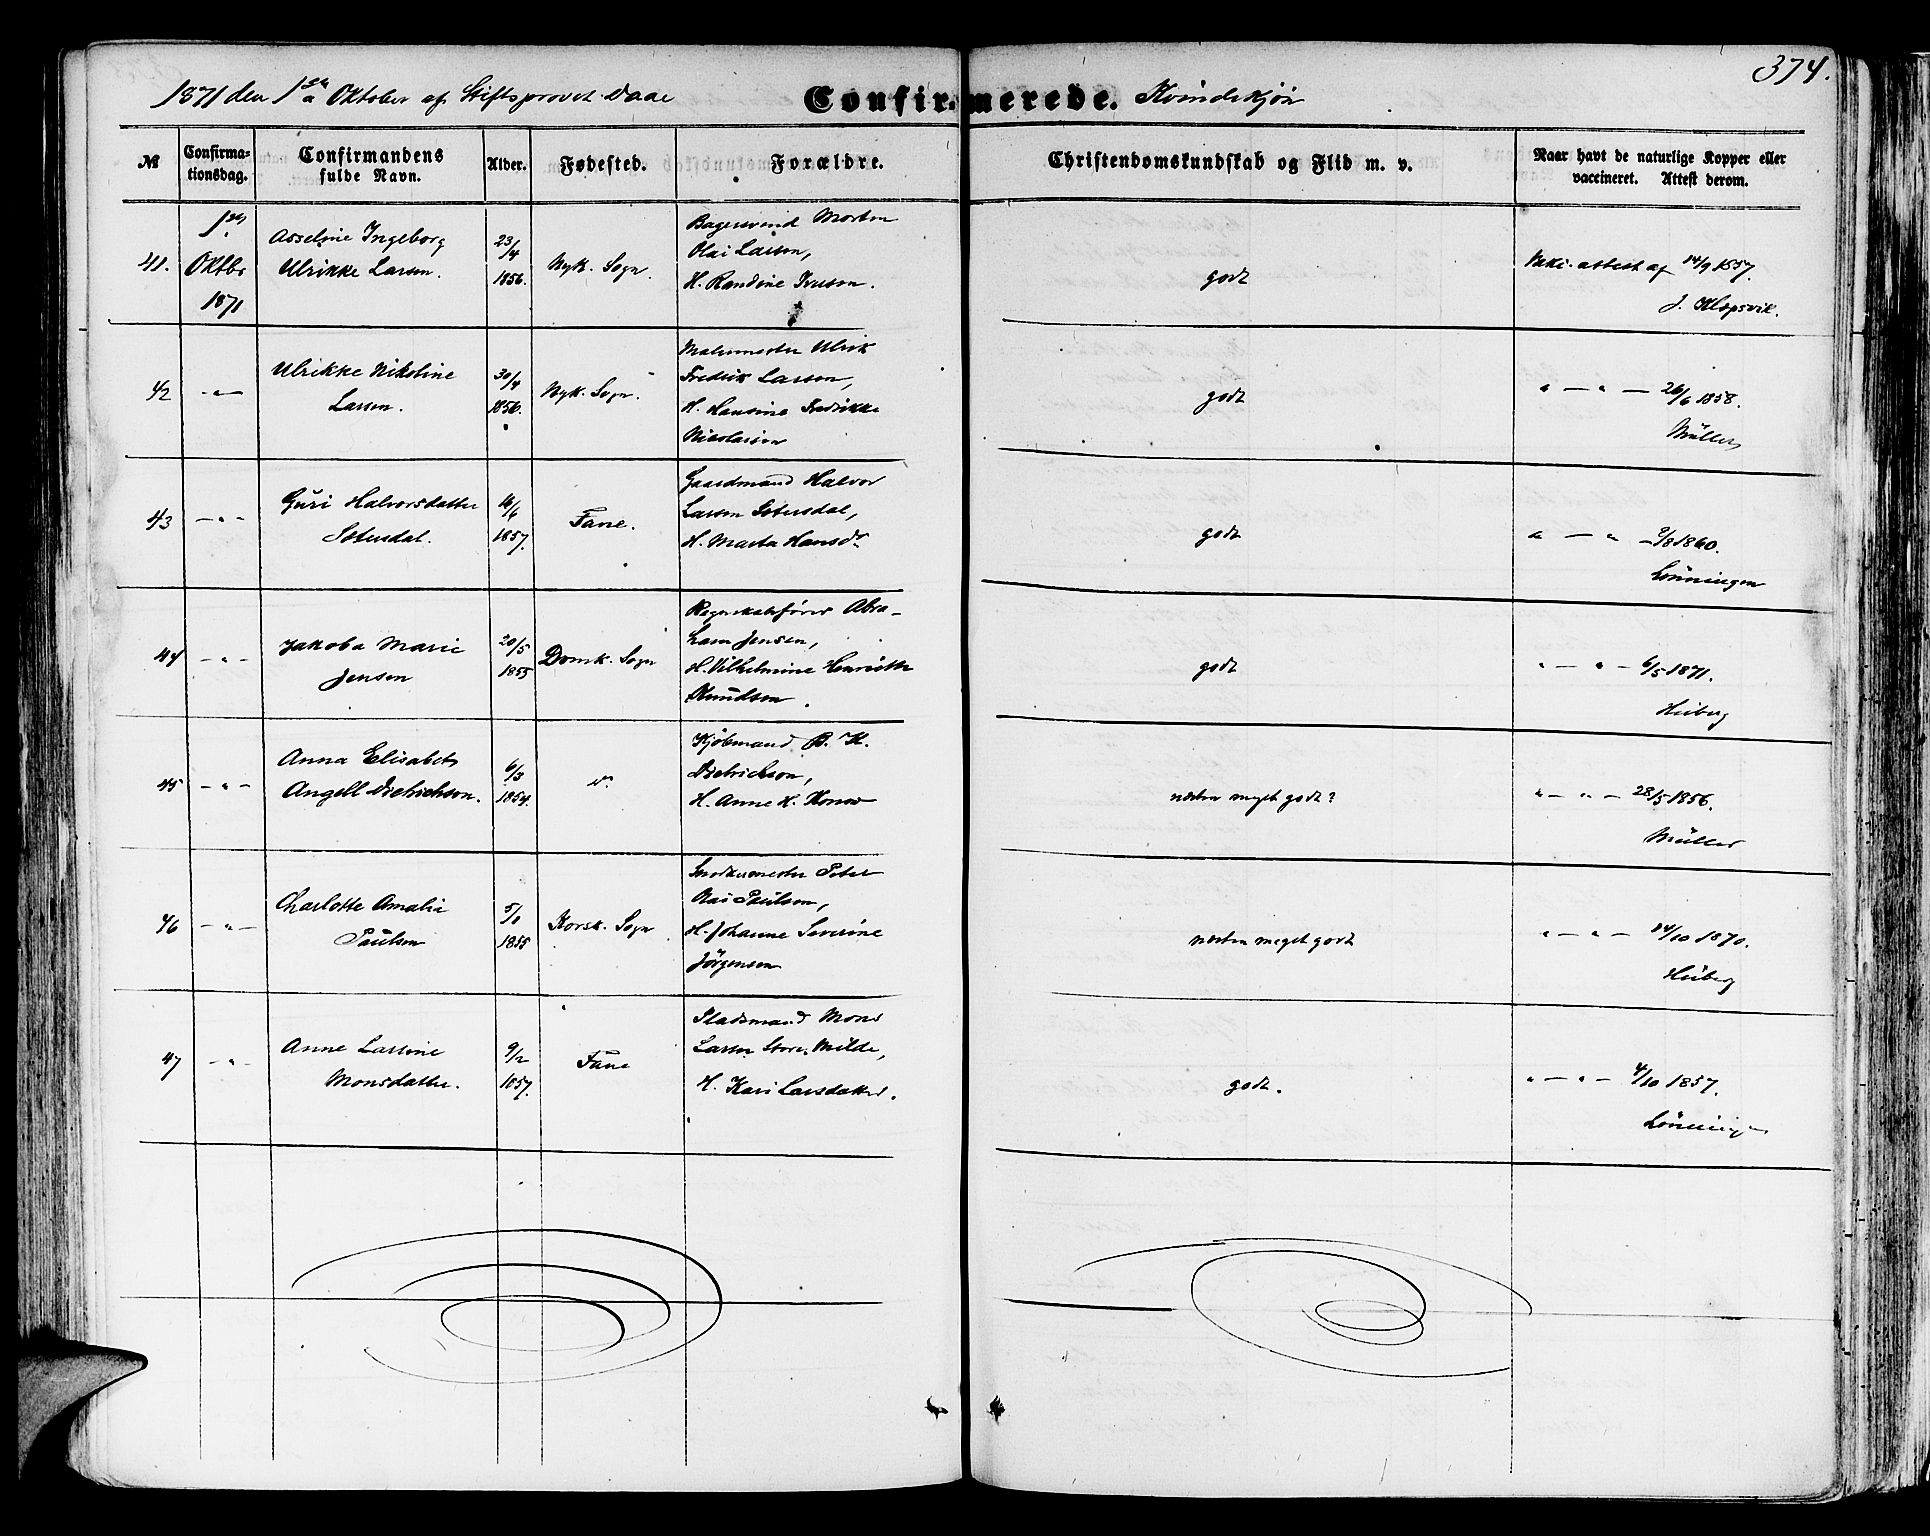 374.
1871 den 1ste Oktober af Stiftsprovst Daae Confirmerede. Kvindekjøn
№ Confirma-tionsdag. Confirmandens fulde Navn. Alder. Fødested. Forældre. Christendomskundskab og Flid m. v. Naar havt de naturlige Kopper eller vaccineret. Attest derom.
41. 1ste Oktbr 1871
Asseline Ingeborg
Ulrikke Larsen.
23/4 1856.
Nyk. Sogn.
Bagersvend Morten
Olai Larsen,
H. Randine Iversen.
godt
Vakc. attest af 14/9 1857.
J. Klopsvik.
42 -"-
Ulrikke Nikoline
Larsen.
30/4 1856.
Nyk. Sogn.
Malermester Ulrik
Fredrik Larsen,
H. Hansine Fredrikke
Nicolaisen
godt
" — " — 26/6 1858.
Müller
43 -"-
Guri Halvorsdatter
Sætersdal.
16/6 1857.
Fane.
Gaardmand Halvor
Larsen Sætersdal,
H. Marta Hansdr
godt
" — " — 9/8 1860.
Lönningen
44 -"-
Jakoba Marie
Jensen
20/5 1855
Domk. Sogn
Regnskabsfører Abra-
ham Jensen,
H. Vilhelmine Henriette
Knudsen.
godt
" — " — 6/5 1871.
Heiberg
45 -"-
Anna Elisabeth
Angell Dietrichson.
6/3 1854.
do
Kjøbmand B. K.
Dietrichson,
H. Anne H. Konow
næsten meget godt?
" — " — 28/5 1856.
Müller
46 -"-
Charlotte Amalia
Paulsen
5/1 1855
Korsk. Sogn
Snedkermester Peter
Paulsen,
H. Johanne Severine
Jörgensen
næsten meget godt
" — " — 24/10 1870.
Heiberg
47 -"-
Anne Larsine
Monsdatter.
9/2 1857.
Fane
Pladsmand Mons
Larsen Store Milde,
H. Kari Larsdatter.
godt.
" — " — 4/10 1857.
Lönningen